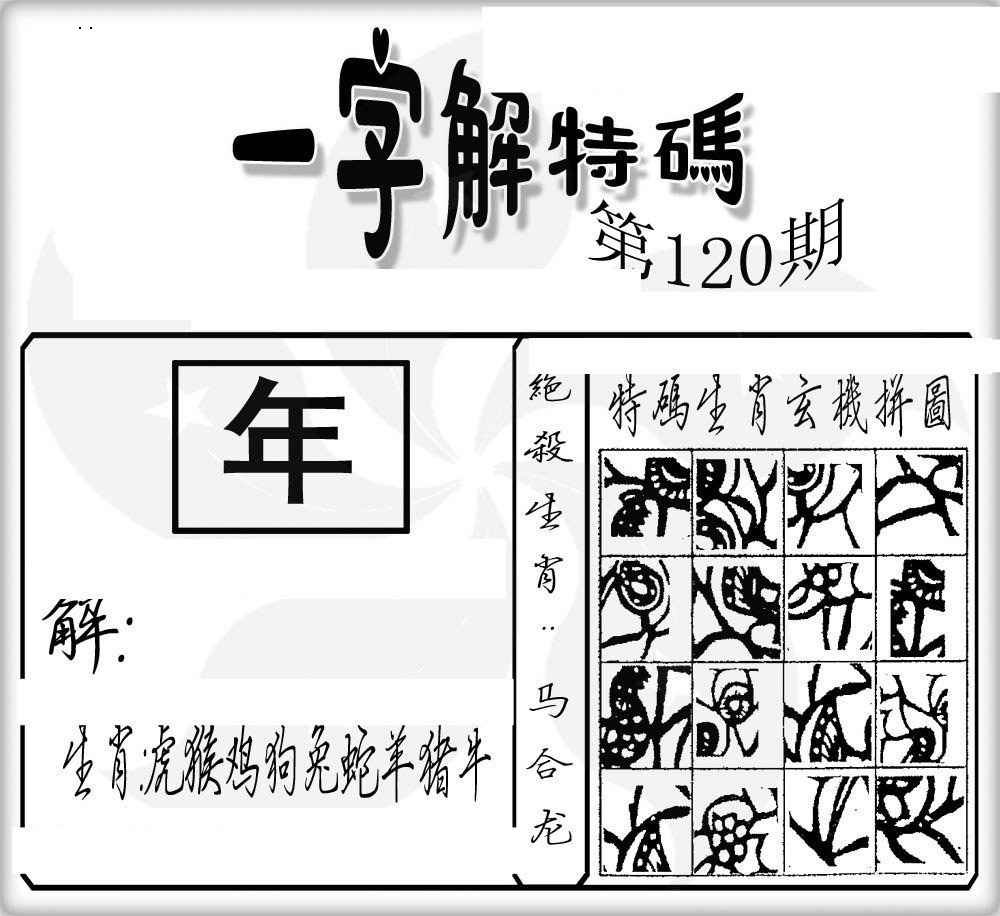 一字解特碼
第120期
年
解:
生肖:虎猴鸡狗兔蛇羊猪牛
絕殺生肖:马合龙
特碼生肖玄機拼圖